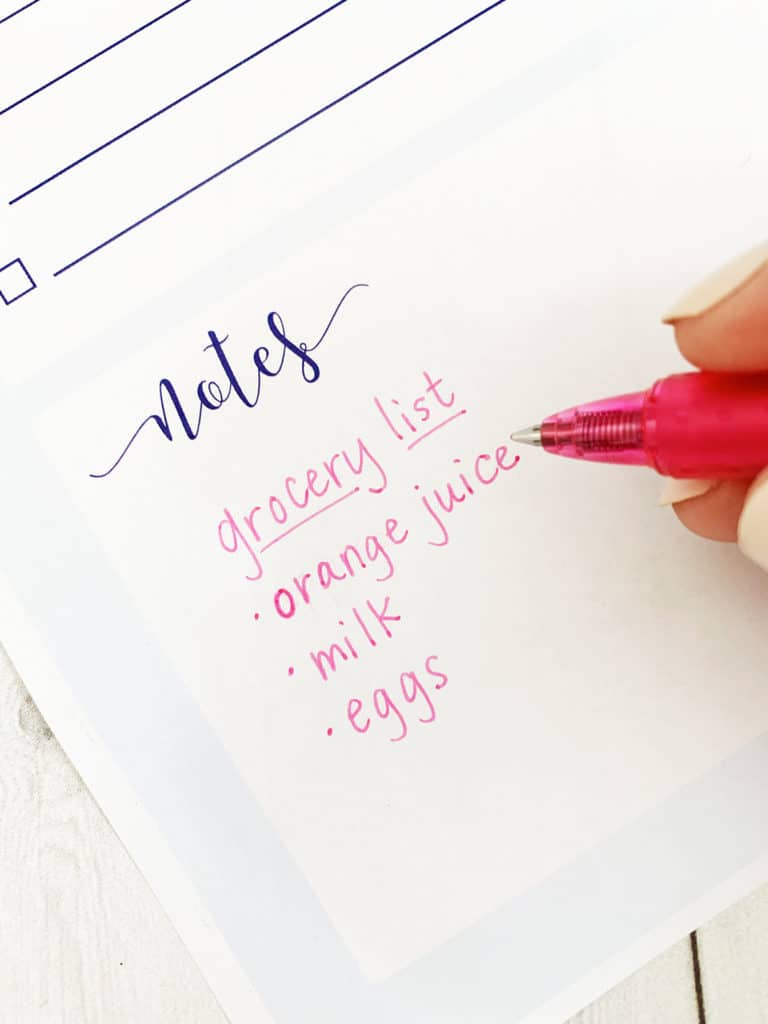 notes
grocery list
• orange juice
• milk
• eggs